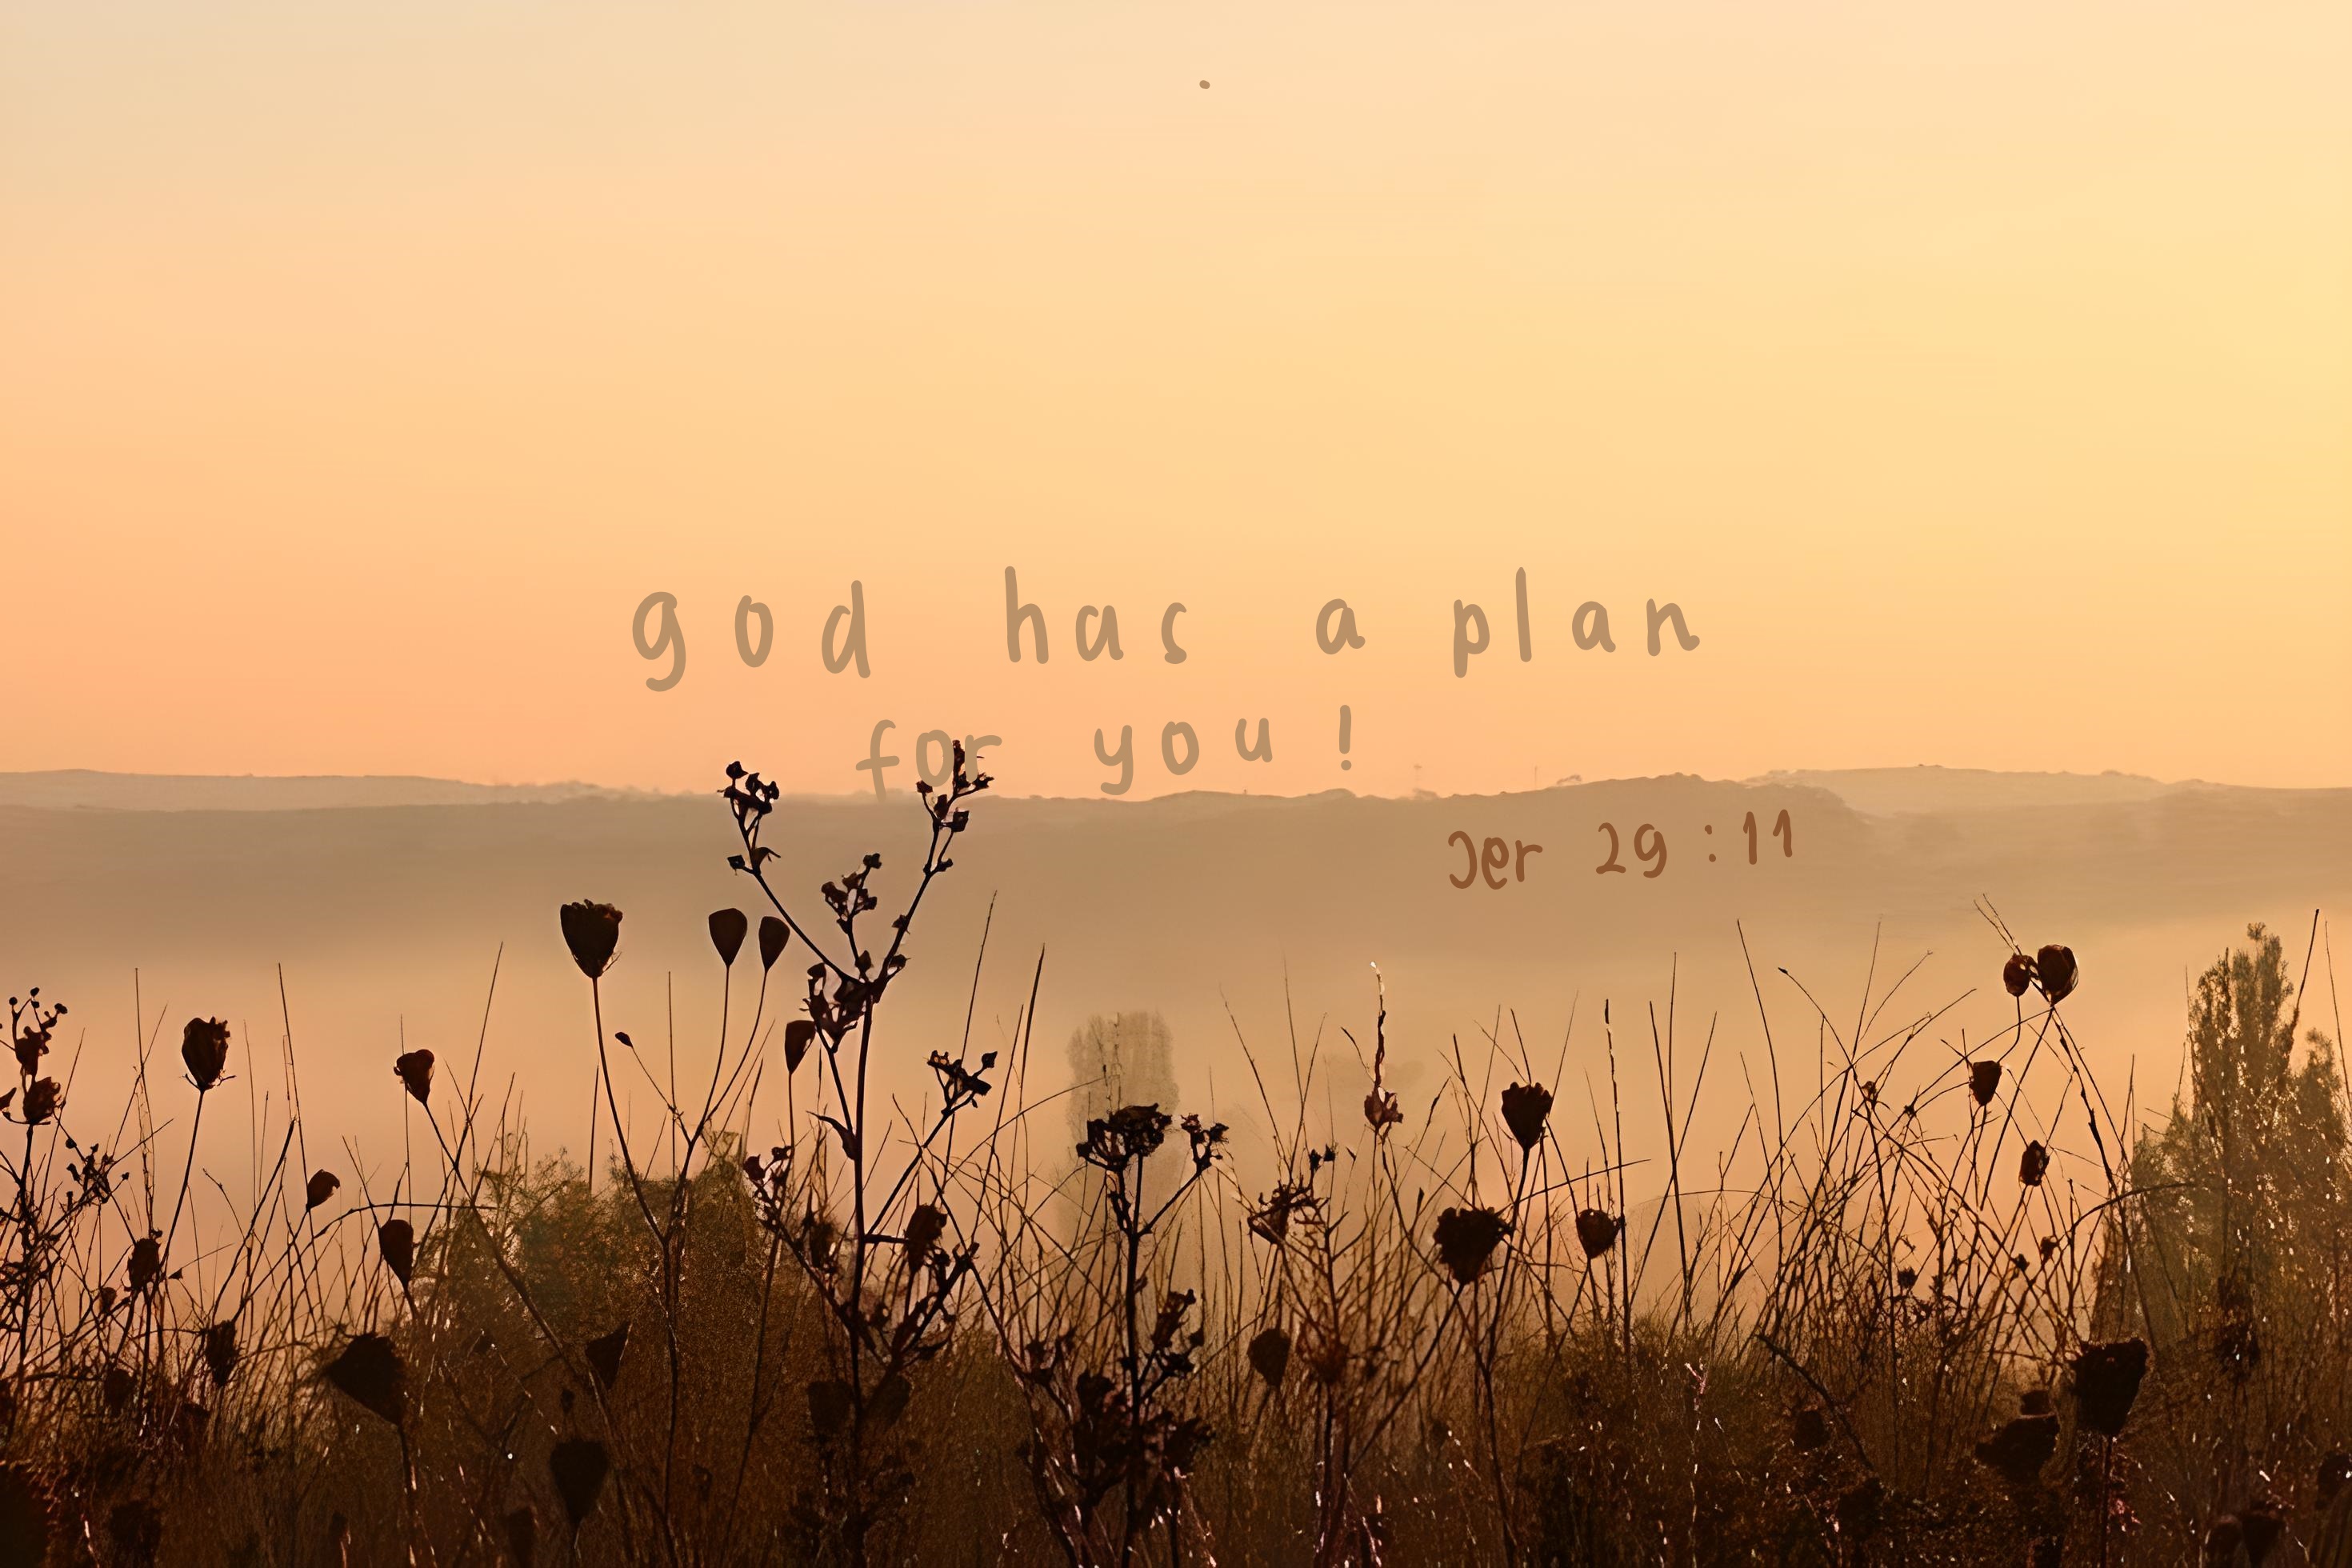 god has a plan
for you!
Jer 29:11